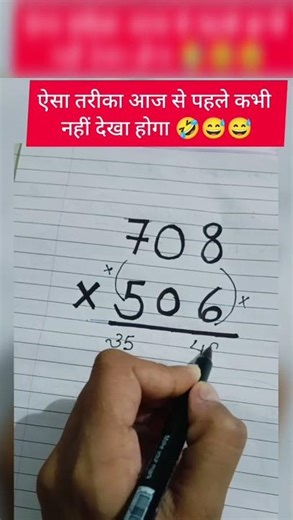 ऐसा तरीका आज से पहले कभी
नहीं देखा होगा 🤣😅😅
708
×(506)×
35 48